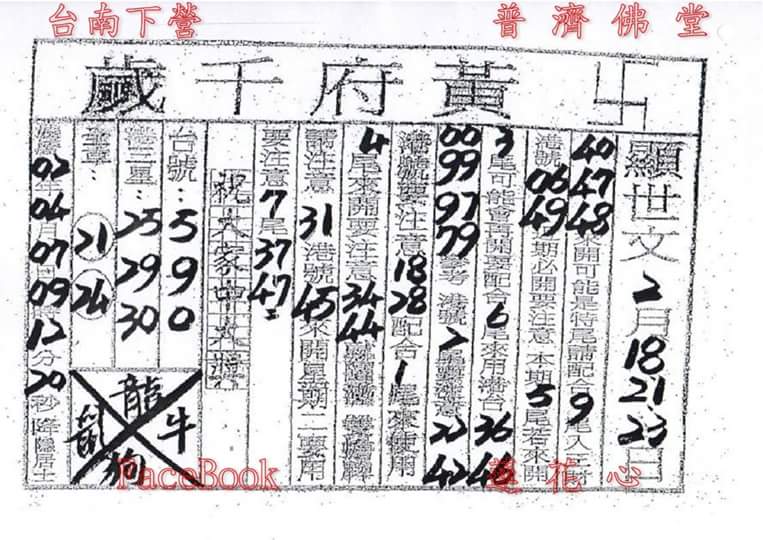 台南下營 普濟佛堂
卍 黃府千歲
顯世文 2月18 21 23日
40 47 48來開可能是特尾請配合9尾
港號06 49 期必開要注意 本期5尾若來開
3尾可能會再開要配合6尾來用港台36 46
00 99 97 79 參考 港號2尾 22 42
港號要注意18 28配合1尾來使用
4尾來開要注意34 44
請注意31港號45來開星期二要用
要注意7尾37 47
祝大家中大獎
台號:5 9 0
港二星:25 29 30
21 24
02年04月07日09時12分20秒降隱居士
龍
鼠 牛
狗
FaceBook 蓮花心